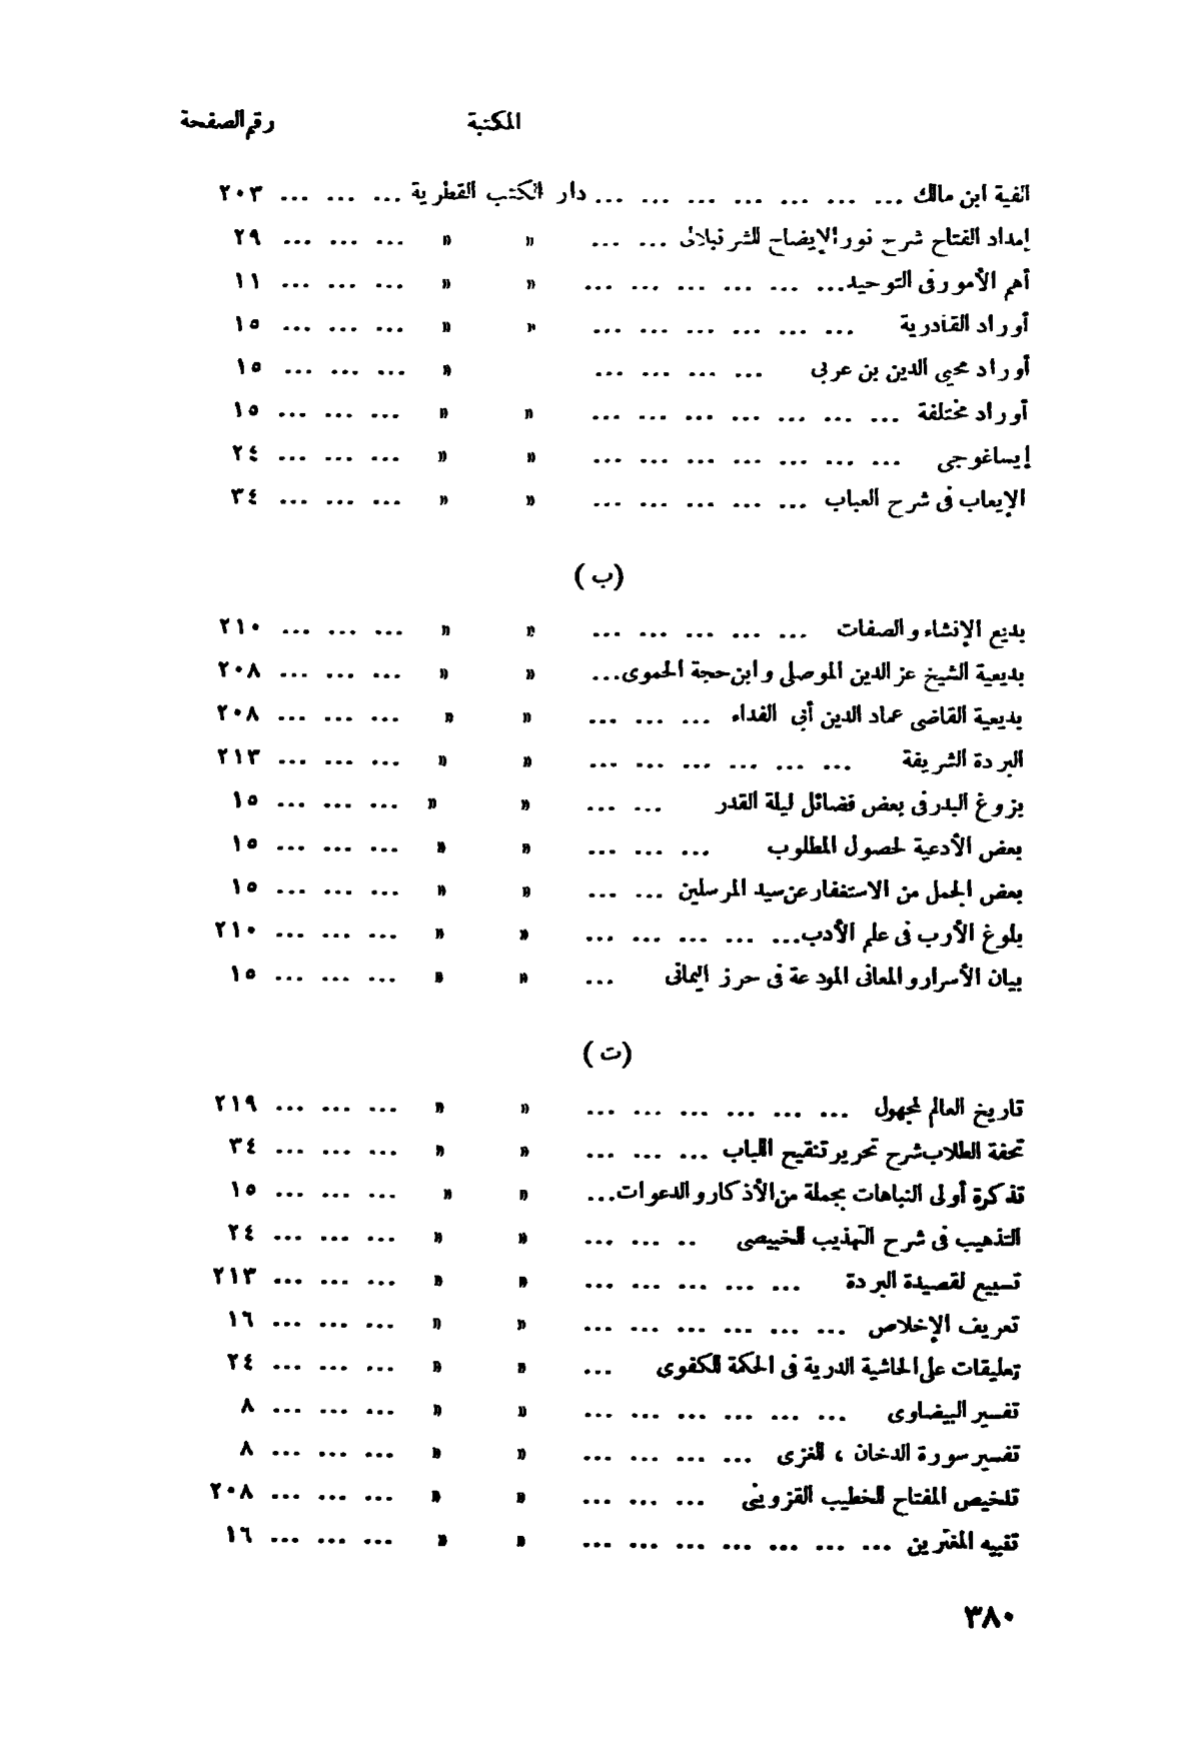 المكتبة رقم الصفحة
الفية ابن مالك ... ... ... ... ... ... ... دار الكتب القطرية ... ... ... ٢٠٣
إمداد الفتاح شرح نور الإيضاح للشرنبلالى ... ... » » ... ... ... ٢٩
أهم الأمور فى التوحيد... ... ... ... ... ... » » ... ... ... ١١
أوراد القادرية ... ... ... ... ... ... » » ... ... ... ١٥
أوراد محيي الدين بن عربى ... ... ... ... » ... ... ... ١٥
أوراد مختلفة ... ... ... ... ... ... ... » » ... ... ... ١٥
إيساغوجى ... ... ... ... ... ... ... » » ... ... ... ٢٤
الإيعاب فى شرح العباب ... ... ... ... ... » » ... ... ... ٣٤
(ب)
بديع الإنشاء والصفات ... ... ... ... ... » » ... ... ... ٢١٠
بديعية الشيخ عز الدين الموصلى وابن حجة الحموى... » » ... ... ... ٢٠٨
بديعية القاضى عماد الدين أبى الفداء ... ... ... » » ... ... ... ٢٠٨
البردة الشريفة ... ... ... ... ... ... » » ... ... ... ٢١٣
بزوغ البدر فى بعض فضائل ليلة القدر ... ... » » ... ... ... ١٥
بعض الأدعية لحصول المطلوب ... ... ... » » ... ... ... ١٥
بعض الجمل من الاستغفار عن سيد المرسلين ... ... » » ... ... ... ١٥
بلوغ الأرب فى علم الأدب... ... ... ... ... » » ... ... ... ٢١٠
بيان الأسرار والمعانى المودعة فى حرز اليمانى ... » » ... ... ... ١٥
(ت)
تاريخ العالم لمجهول ... ... ... ... ... ... » » ... ... ... ٢١٩
تحفة الطلاب شرح تحرير تنقيح اللباب ... ... ... » » ... ... ... ٣٤
تذكرة أولى النباهات بجملة من الأذكار والدعوات... » » ... ... ... ١٥
التذهيب فى شرح التهذيب للخبيصى .. ... ... » » ... ... ... ٢٤
تسبيع لقصيدة البردة ... ... ... ... ... » » ... ... ... ٢١٣
تعريف الإخلاص ... ... ... ... ... ... » » ... ... ... ١٦
تعليقات على الحاشية الدرية فى الحكمة للكفوى ... » » ... ... ... ٢٤
تفسير البيضاوى ... ... ... ... ... ... » » ... ... ... ٨
تفسير سورة الدخان ، للغزى ... ... ... ... » » ... ... ... ٨
تلخيص المفتاح للخطيب القزوينى ... ... ... » » ... ... ... ٢٠٨
تنبيه المغترين ... ... ... ... ... ... ... » » ... ... ... ١٦
٣٨٠